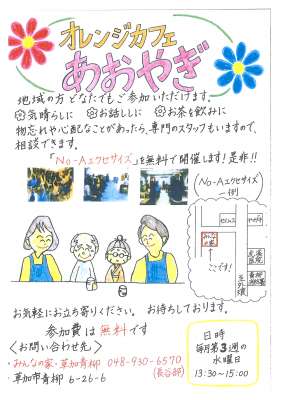 オレンジカフェ
あおやぎ
地域の方どなたでもご参加いただけます。
気晴らしに お話ししに お茶を飲みに
物忘れや心配なことがあったら、専門のスタッフもいますので、
相談できます。
「No-Aエクササイズ」を無料で開催します!是非!!
(No-Aエクササイズ
一例)
みんなの家
ここです!
お気軽にお立ち寄りください。 お待ちしております。
参加費は無料です
〈お問い合わせ先〉
・みんなの家・草加青柳 048-930-6570
(長谷部)
草加市青柳 6-26-6
日時
毎月第3週の
水曜日
13:30~15:00